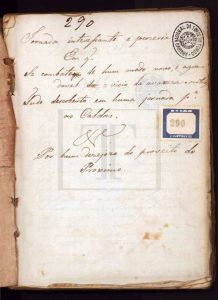 290
Jornada interessante e proveitosa
Em q.
Se combate de hum modo novo e agra-
davel o vicio da avareza
Tudo descoberto em huma jornada pª
as Caldas.
Por hum dezejozo do proveito do
Proximo
290